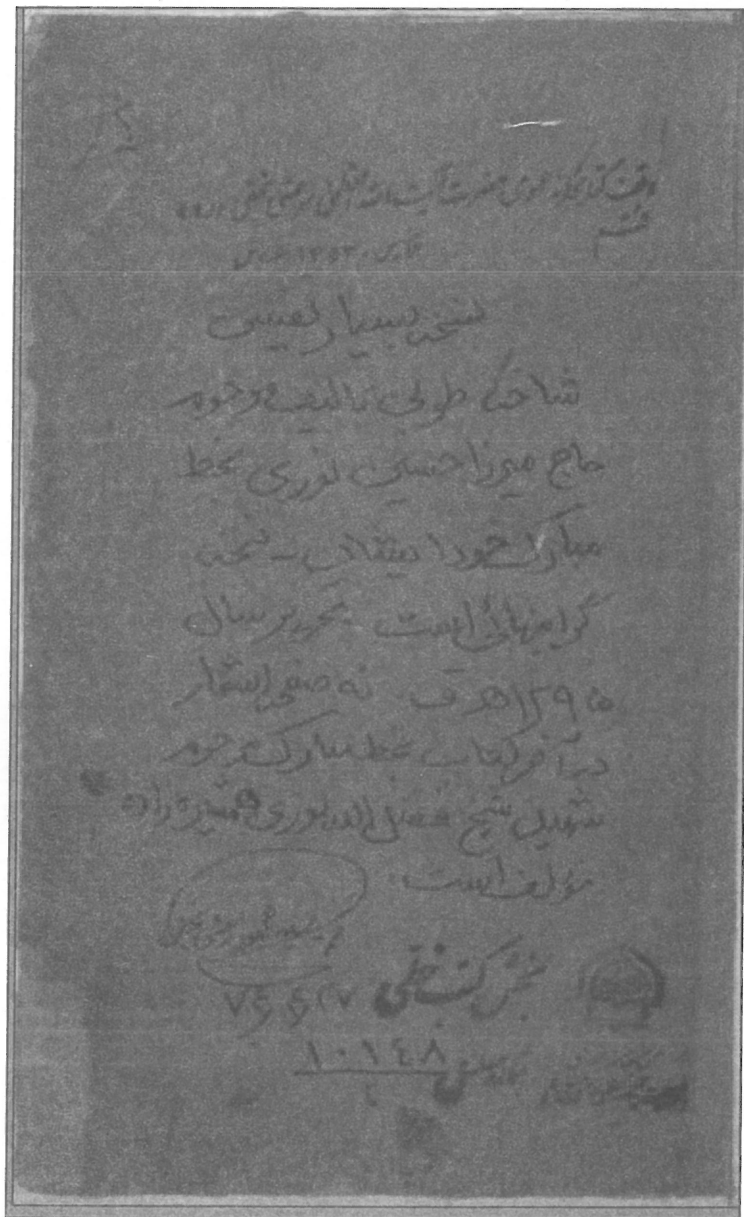 وقف کتابخانه عمومی حضرت آیت الله العظمی مرعشی نجفی
قم
۱۳۵۳
نسخه بسیار نفیس
طوبی تالیف مرحوم
حاج میرزا حسین نوری بخط
مبارک خود ایشان - نسخه
گرانبهائی است بتحریر سال
۱۲۹۵ هـ ق نه صفحه اشعار
در آخر کتاب بخط مبارک مرحوم
شهید شیخ فضل الله نوری همشیره زاده
مؤلف است.
سید محمود مرعشی
بخش کتب خطی
۱۰۱۴۸